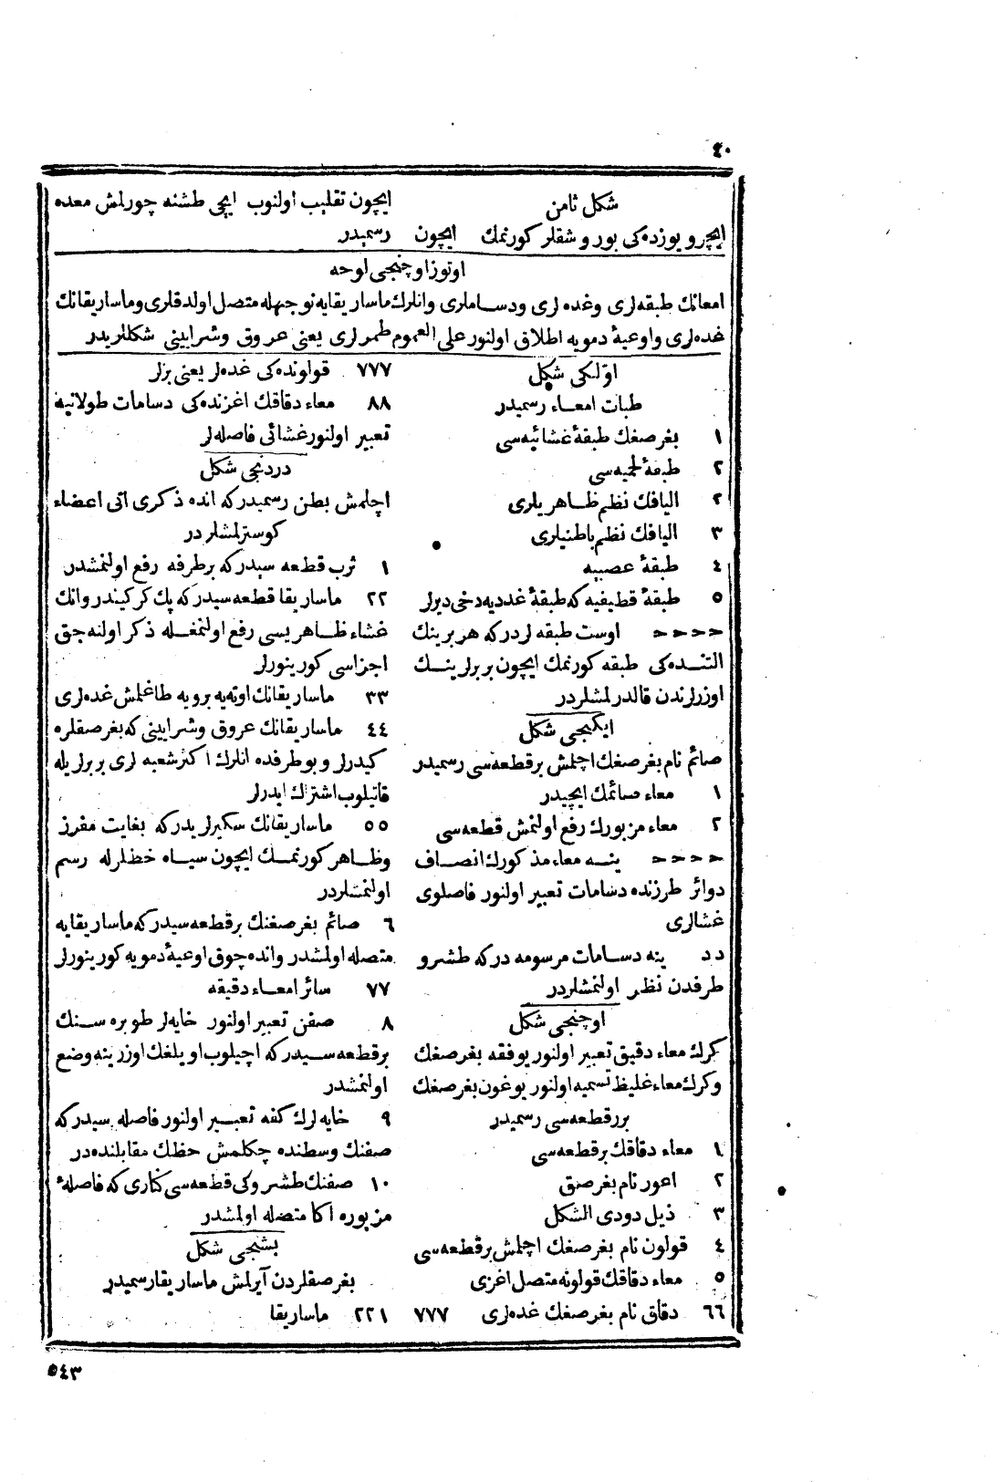 ٤٠
شكل ثامن
ايچرو يوزده‌كى بور و شقلر كورنمك ايچون تقليب اولنوب ايچى طشنه چورلمش معده
ايچون رسميدر
اوتوز اوچنجى لوحه
امعانك طبقه‌لرى و غده‌لرى ودساملرى وانلرك ماساريقايه نوجهله متصل اولدقلرى وماساريقانك
غده‌لرى واوعيۀ دمويه اطلاق اولنور على العموم طمرلرى يعنى عروق وشرايينى شكللريدر
اوّلكى شكل
طبات امعاء رسميدر
١ بغرصغك طبقۀ غشائيه‌سى
٢ طبقۀ لحميه‌سى
٢ اليافك نظم ظاهريلرى
٣ اليافك نظم باطنيلرى
٤ طبقۀ عصبيه
٥ طبقۀ قطيفيه كه طبقۀ غدديه دخى ديرلر
>>>> اوست طبقه لردركه هر برينك
التنده‌كى طبقه كورنمك ايچون بربرلرينك
اوزرلرندن قالدرلمشلردر
ايكنجى شكل
صائم نام بغرصغك اچلمش برقطعه‌سى رسميدر
١ معاء صائمك ايچيدر
٢ معاء مزبورك رفع اولنمش قطعه‌سى
>>>> ينه معاء مذكورك انصاف
دوائر طرزنده دسامات تعبير اولنور فاصلوى
غشالرى
دد ينه دسامات مرسومه دركه طشرو
طرفدن نظر اولنمشلردر
اوچنجى شكل
كرك معاء دقيق تعبير اولنور يوفقه بغرصغك
وكرك معاء غليظ تسميه اولنور يوغون بغرصغك
برقطعه‌سى رسميدر
١ معاء دقاقك برقطعه‌سى
٢ اعور نام بغرصق
٣ ذيل دودى الشكل
٤ قولون نام بغرصغك اچلمش برقطعه‌سى
٥ معاء دقاقك قولونه متصل اغزى
٦٦ دقاق نام بغرصغك غده‌لرى ٧٧٧
٧٧٧ قولونده‌كى غده‌لر يعنى بزلر
٨٨ معاء دقاقك اغزنده‌كى دسامات طولانيه
تعبير اولنور غشائى فاصله‌لر
دردنجى شكل
اچلمش بطن رسميدركه انده ذكرى اتى اعضاء
كوسترلمشلردر
١ ثرب قطعه سيدركه برطرفه رفع اولنمشدر
٢٢ ماساريقا قطعه سيدركه پك كركيندر وانك
غشاء ظاهريسى رفع اولنمغله ذكر اولنه جق
اجزاسى كورينورلر
٣٣ ماساريقانك اوته‌يه برويه طاغلمش غده‌لرى
٤٤ ماساريقانك عروق وشرايينى كه بغرصقلره
كيدرلر و بوطرفده انلرك اكثر شعبه لرى بربرليله
قاتيلوب اشتراك ايدرلر
٥٥ ماساريقانك سكيرلريدركه بغايت مفرز
وظاهر كورنمك ايچون سياه خطلرله رسم
اولنمشلردر
٦ صائم بغرصغنك برقطعه سيدركه ماساريقايه
متصله اولمشدر وانده چوق اوعيۀ دمويه كورينورلر
٧٧ سائر امعاء دقيقه
٨ صفن تعبير اولنور خايه‌لر طوبره سنك
برقطعه سيدركه اچيلوب اويلغك اوزرينه وضع
اولنمشدر
٩ خايه لرك كفه تعبير اولنور فاصله سيدركه
صفنك وسطنده چكلمش خطك مقابلنده در
١٠ صفنك طشروكى قطعه‌سى كنارى كه فاصلۀ
مزبوره اكا متصله اولمشدر
بشنجى شكل
بغرصقلردن آيرلمش ماساريقا رسميدر
٢٢١ ماساريقا
٥٤٣